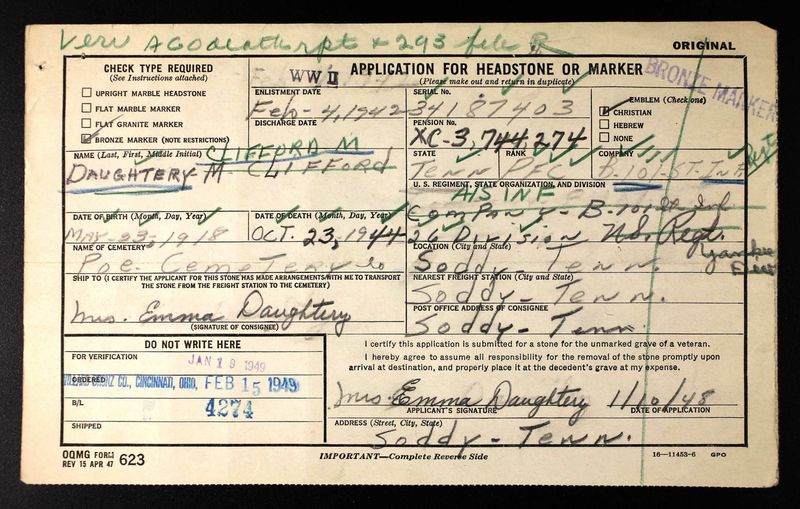 Veri AGO death rpt + 293 file R
ORIGINAL
CHECK TYPE REQUIRED
(See Instructions attached)
UPRIGHT MARBLE HEADSTONE
FLAT MARBLE MARKER
FLAT GRANITE MARKER
BRONZE MARKER (NOTE RESTRICTIONS)
WW II
APPLICATION FOR HEADSTONE OR MARKER
(Please make out and return in duplicate)
BRONZE MARKER
ENLISTMENT DATE
Feb-4, 1942
SERIAL No.
34187403
EMBLEM (Check one)
CHRISTIAN
HEBREW
NONE
DISCHARGE DATE
PENSION No.
XC-3,744,274
NAME (Last, First, Middle Initial)
CLIFFORD M
DAUGHTERY M CLIFFORD
STATE
Tenn
RANK
PFC
COMPANY
B-101-ST-Inf
Regt
U. S. REGIMENT, STATE ORGANIZATION, AND DIVISION
A/S INF
Company-B-101 st Inf
26 Division US. Regt.
Yankee
DATE OF BIRTH (Month, Day, Year)
MAY-23-1918
DATE OF DEATH (Month, Day, Year)
OCT. 23, 1944
NAME OF CEMETERY
Poe-Cemetery
LOCATION (City and State)
Soddy-Tenn.
SHIP TO (I CERTIFY THE APPLICANT FOR THIS STONE HAS MADE ARRANGEMENTS WITH ME TO TRANSPORT
THE STONE FROM THE FREIGHT STATION TO THE CEMETERY)
NEAREST FREIGHT STATION (City and State)
Soddy-Tenn.
Mrs. Emma Daughtery
(SIGNATURE OF CONSIGNEE)
POST OFFICE ADDRESS OF CONSIGNEE
Soddy-Tenn.
DO NOT WRITE HERE
FOR VERIFICATION
JAN 19 1949
ORDERED
CO., CINCINNATI, OHIO, FEB 15 1949
B/L
4274
SHIPPED
I certify this application is submitted for a stone for the unmarked grave of a veteran.
I hereby agree to assume all responsibility for the removal of the stone promptly upon
arrival at destination, and properly place it at the decedent's grave at my expense.
Mrs. Emma Daughtery 1/10/48
APPLICANT'S SIGNATURE
DATE OF APPLICATION
ADDRESS (Street, City, State)
Soddy-Tenn.
OQMG FORM
REV 15 APR 47
623
IMPORTANT—Complete Reverse Side
16—11453-6 GPO